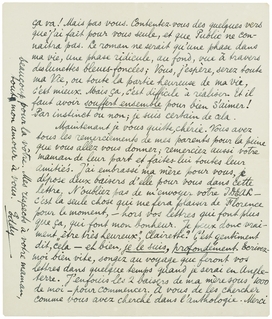 ça va! Mais pas vous. Contentez-vous des quelques vers
que j'ai fait pour vous seule, et que Public ne con-
naîtra pas. Le roman ne serait qu'une phase dans
ma vie, une phase ridicule, au fond, vue à travers
des lunettes bleues-foncées; Vous, j'espère, serez toute
ma Vie, ou toute la partie heureuse de ma vie,
c'est mieux. Mais ça, c'est difficile à réaliser. Et il
faut avoir souffert ensemble pour bien s'aimer!
Par instinct ou non; je suis certain de cela.
Maintenant je vous quitte, chérie. Vous avez
tous les remerciments de mes parents pour la peine
que vous allez vous donner; remerciez aussi votre
maman de leur part et faites-lui toutes leur
amitiés. J'ai embrassé ma mère pour vous, je
vous deux baisers d'elle pour vous dans cette
lettre, N'oubliez pas de m'envoyer votre
c'est la seule chose qui me fera plaisir de Florence
pour le moment, — hors vos lettres qui font plus
que ça, qui font mon bonheur. Je peux donc vrai-
ment être très heureux, Clairette! C'est gentiment
dit, cela — eh bien, je le suis, profondément. Ecrivez-
moi bien vite, songez au voyage que feront vos
lettres dans quelque temps quand je serai en Angle-
terre. J'enfouis les 2 baisers de ma mère sous 1000
de moi — pour commencer. A vous de les chercher
comme vous avez cherché dans l'anthologie. Merci
beaucoup pour la votre. Mes respects à votre maman,
tout mon amour à vous